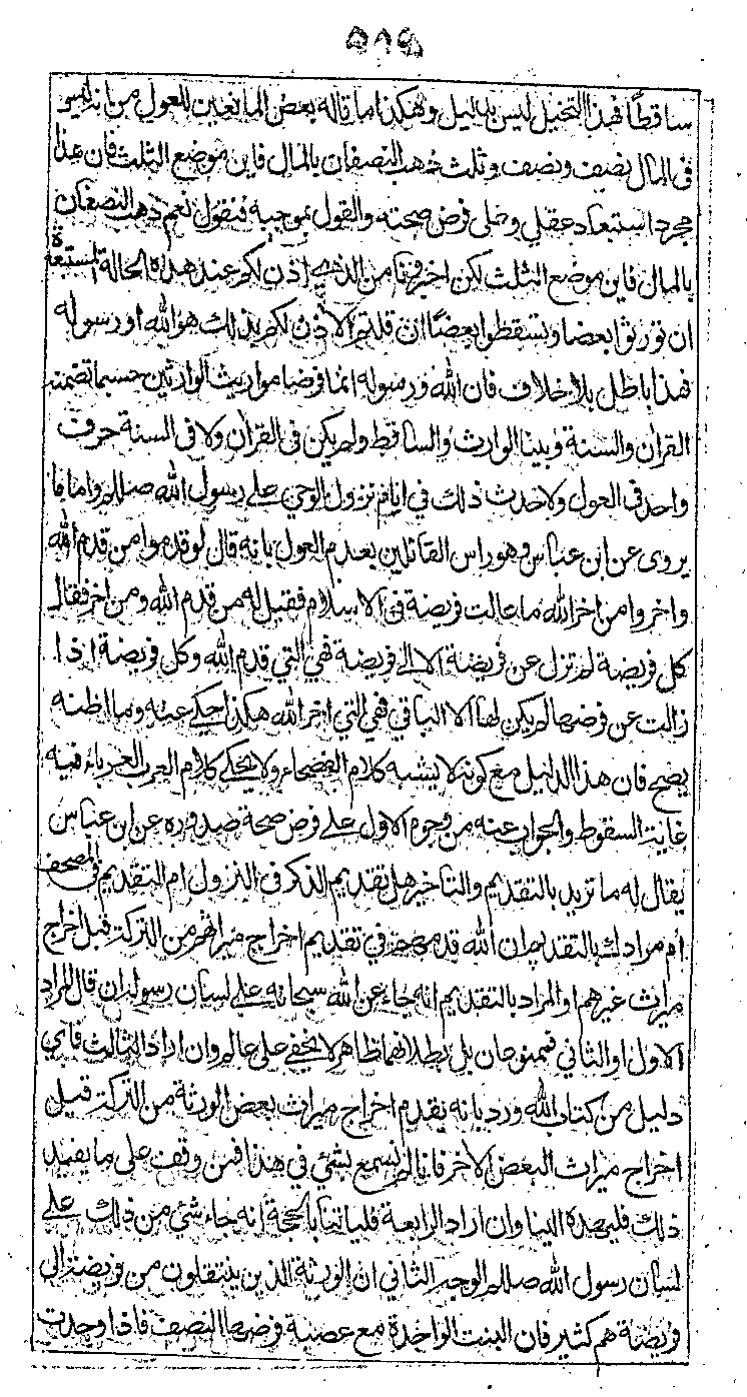 ٥١٩
ساقطًا فهذا التخيل ليس بدليل وهكذا ما قاله بعض المانعين للعول من انه ليس
فى المال نصف ونصف وثلث ذهب النصفان بالمال فاين موضع الثلث فان هذا
مجرد استبعاد عقلي وعلى فرض صحته والقول بموجبه فنقول نعم ذهب النصفان
بالمال فاين موضع الثلث لكن اخبرونا من الذي اذن لكم عند هذه الحالة المستبعدة
ان تورثوا بعضا وتسقطوا بعضًا ان قلتم الآذن لكم بذلك هو الله او رسوله
فهذا باطل بلا خلاف فان الله ورسوله انما فرضا مواريث الوارثين حسبما تضمنه
القران والسنة وبينا الوارث والساقط ولم يكن فى القران ولا فى السنة حرف
واحد فى العول ولا حدث ذلك في ايام نزول الوحي على رسول الله صللم واما ما
يروى عن ابن عباس وهو راس القائلين بعدم العول بانه قال لو قدموا من قدم الله
واخروا من اخر الله ما عالت فريضة فى الاسلام فقيل له من قدم الله ومن اخر فقال
كل فريضة لم تزل عن فريضة الا الى فريضة فهي التي قدم الله وكل فريضة اذا
زالت عن فرضها لم يكن لها الا الباقي فهي التي اخر الله هكذا حكى عنه وما اظنه
يصح فان هذا الدليل مع كونه لا يشبه كلام الفصحاء ولا يحكي كلام العرب العرباء فيه
غاية السقوط والجواب عنه من وجوه الاول على فرض صحة صدوره عن ابن عباس
يقال له ما تريد بالتقديم والتاخير هل تقديم الذكر فى النزول ام التقديم فى المصحف
أم مرادك بالتقديم ان الله قدمهم في تقديم اخراج ميراثهم من التركة قبل اخراج
ميراث غيرهم او المراد بالتقديم انه جاء عن الله سبحانه على لسان رسوله ان قال المراد
الاول او الثاني فممنوعان بل بطلانهما ظاهر لا يخفى على عالم وان اراد الثالث فاي
دليل من كتاب الله ورد بانه يقدم اخراج ميراث بعض الورثة من التركة قبل
اخراج ميراث البعض الاخر فانا لم نسمع بشئ في هذا فمن وقف على ما يفيد
ذلك فليهده الينا وان اراد الرابعة فلياتنا بالحجة انه جاء شئ من ذلك على
لسان رسول الله صللم الوجه الثاني ان الورثة الذين ينتقلون من فريضة الى
فريضة هم كثير فان البنت الواحدة مع عصبة فرضها النصف فاذا وجدت